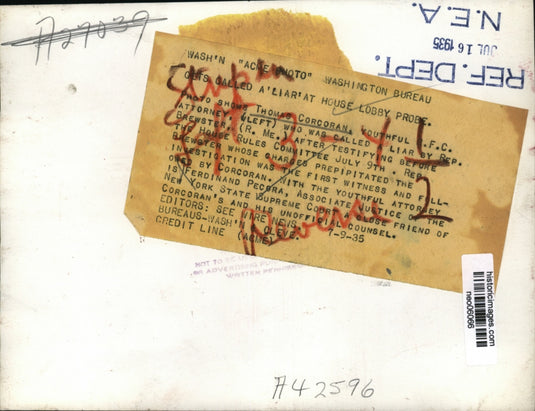 A27039
REF. DEPT.
JUL 16 1935
N.E.A.
WASH'N "ACME PHOTO" WASHINGTON BUREAU
GETS CALLED A 'LIAR' AT HOUSE LOBBY PROBE.
PHOTO SHOWS THOMAS CORCORAN, YOUTHFUL R.F.C.
ATTORNEY (LEFT) WHO WAS CALLED A LIAR BY REP.
BREWSTER, (R. ME.) AFTER TESTIFYING BEFORE
THE HOUSE RULES COMMITTEE JULY 9TH. REP.
BREWSTER WHOSE CHARGES PREPIPITATED THE
INVESTIGATION WAS THE FIRST WITNESS AND FOLL-
OWED BY CORCORAN. WITH THE YOUTHFUL ATTORNEY
IS FERDINAND PECORA, ASSOCIATE JUSTICE OF THE
NEW YORK STATE SUPREME COURT, CLOSE FRIEND OF
CORCORAN'S AND HIS UNOFFICIAL COUNSEL.
EDITORS: SEE WIRE NEWS
BUREAUS-WASH'N CLEVE. 7-9-35
CREDIT LINE (ACME)
3-4
1
2
Reverse
NOT TO BE
OR ADVERTISING
WRITTEN PERMISSION
historicimages.com
neo06066
A42596